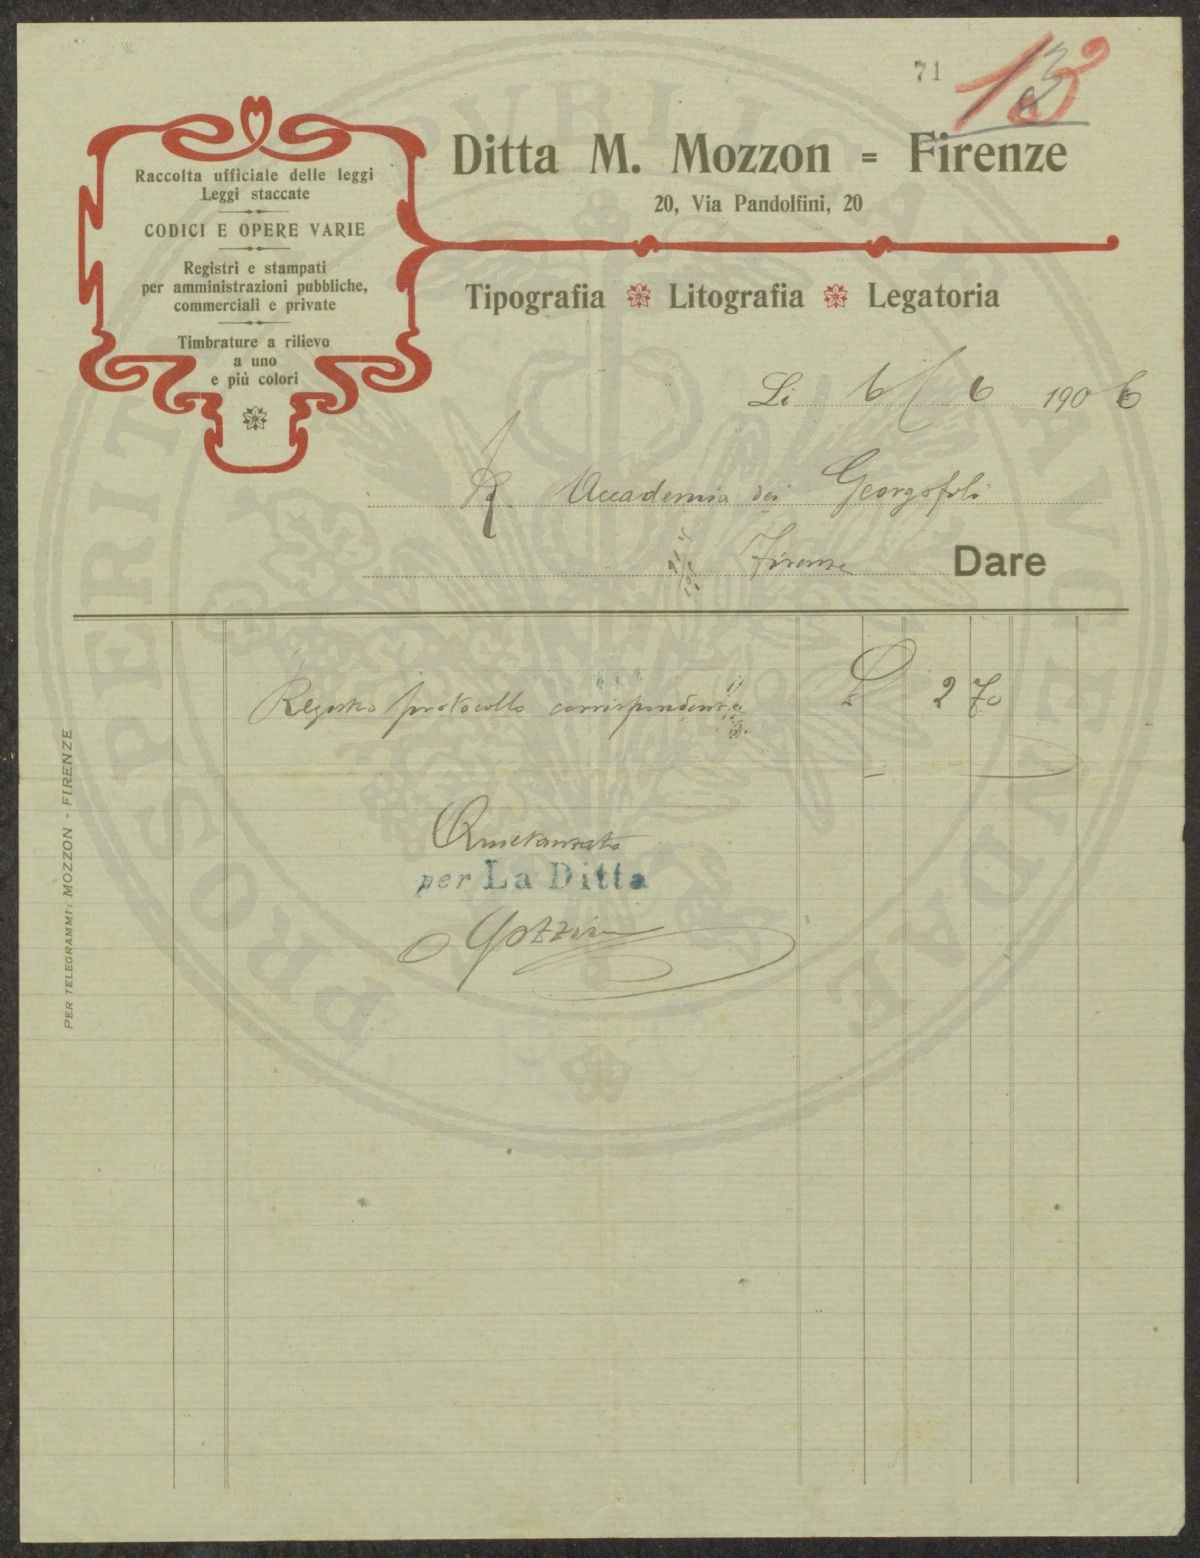 71
13
Ditta M. Mozzon = Firenze
20, Via Pandolfini, 20
Tipografia Litografia Legatoria
Raccolta ufficiale delle leggi
Leggi staccate
CODICI E OPERE VARIE
Registri e stampati
per amministrazioni pubbliche,
commerciali e private
Timbrature a rilievo
a uno
e più colori
Li 6/6 1906
R. Accademia dei Georgofili
Firenze Dare
Registro protocollo corrispondenza £ 2 70
Quietanzato
per La Ditta
PER TELEGRAMMI: MOZZON - FIRENZE
PROSPERITATI PUBLICAE AUGENDAE